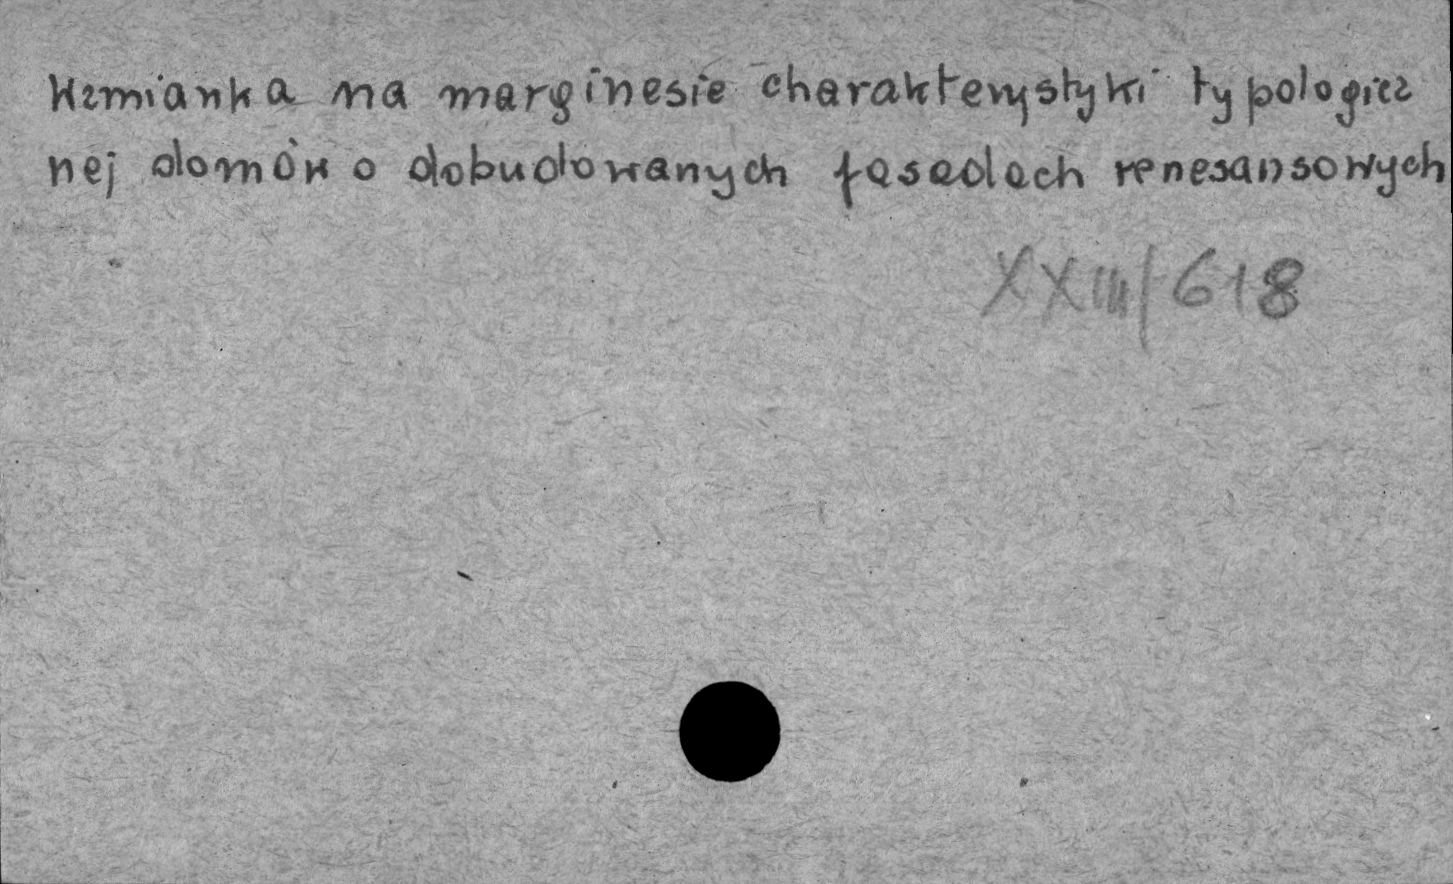 Wzmianka na marginesie charakterystyki typologicz
nej domów o dobudowanych fasadach renesansowych
XXIII/618